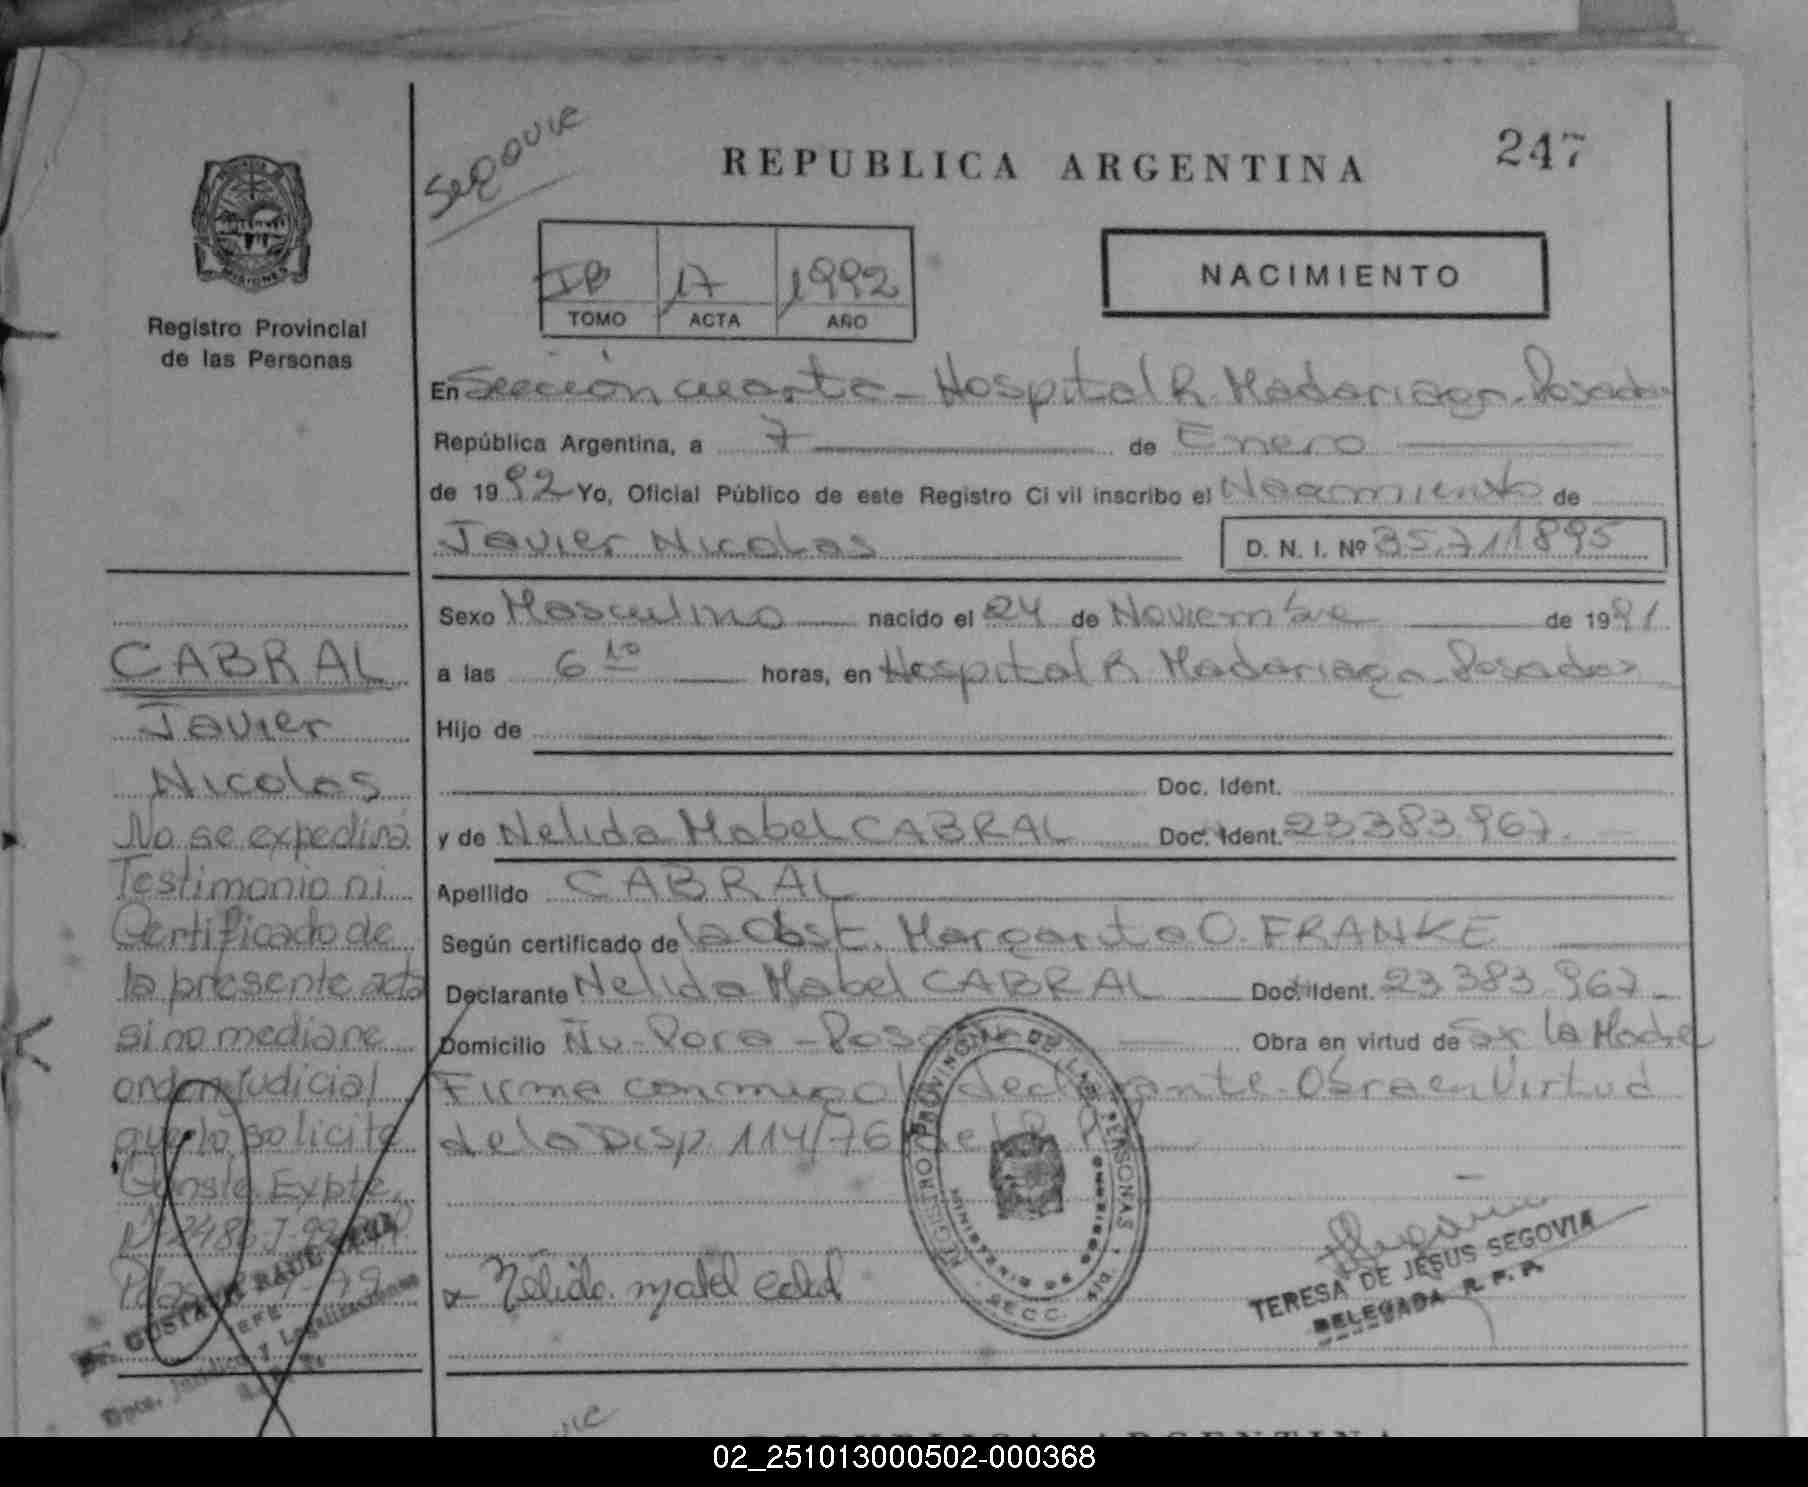 Segovia
REPUBLICA ARGENTINA
247
PROVINCIA DE
MISIONES
Registro Provincial
de las Personas
IB 17 1992
TOMO ACTA AÑO
NACIMIENTO
En Sección cuarta - Hospital R. Madariaga - Posadas
República Argentina, a 7 de Enero
de 1992 Yo, Oficial Público de este Registro Civil inscribo el Nacimiento de
Javier Nicolas D. N. I. Nº 35.711895
Sexo Masculino nacido el 24 de Noviembre de 1991
a las 6 10 horas, en Hospital R Madariaga - Posadas
Hijo de
Doc. Ident.
y de Nelida Mabel CABRAL Doc. Ident. 23.383.967.
Apellido CABRAL
Según certificado de la Obst. Margarita O. FRANKE
Declarante Nelida Mabel CABRAL Doc. Ident. 23 383 967
Domicilio Ñu - Pora - Posadas Obra en virtud de ser la Madre
Firma conmigo la declarante. Obra en Virtud
de la Disp. 114/76 del R. P.
Nélida mabel cabral
REGISTRO PROVINCIAL DE LAS PERSONAS
SECC.
TERESA DE JESUS SEGOVIA
DELEGADA R. P. P.
CABRAL
Javier
Nicolas
No se expedirá
Testimonio ni
Certificado de
la presente acta
si no mediare
orden judicial
que lo solicite
Consta Expte.
GUSTAVO RAUL
JEFE
Dpto. Jurídico y Legalizaciones
REPUBLICA ARGENTINA
02_251013000502-000368